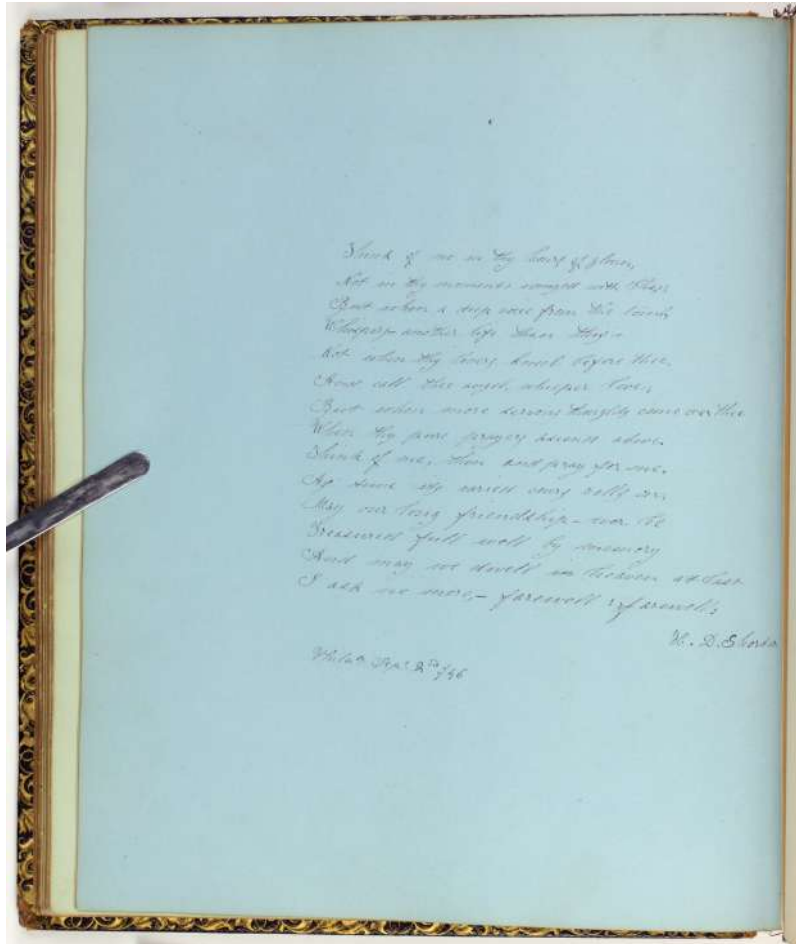 Think of me in thy hours of gloom,
Not in thy moments winged with bliss
But when a deep voice from the tomb
Whispers another life than this -
Not when thy lovers kneel before thee,
And call thee angel, whisper love,
But when more serious thoughts come o'er thee
When thy pure prayers ascend above.
Think of me, then and pray for me.
As time its varied way rolls on,
May our long friendship - ever be
Treasured full well by memory
And may we dwell in heaven at last
I ask no more, - farewell, farewell.
W. D.
Philada Sept 2nd /56